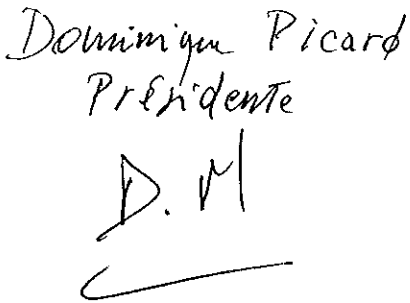 Dominique Picard
Présidente
D. M